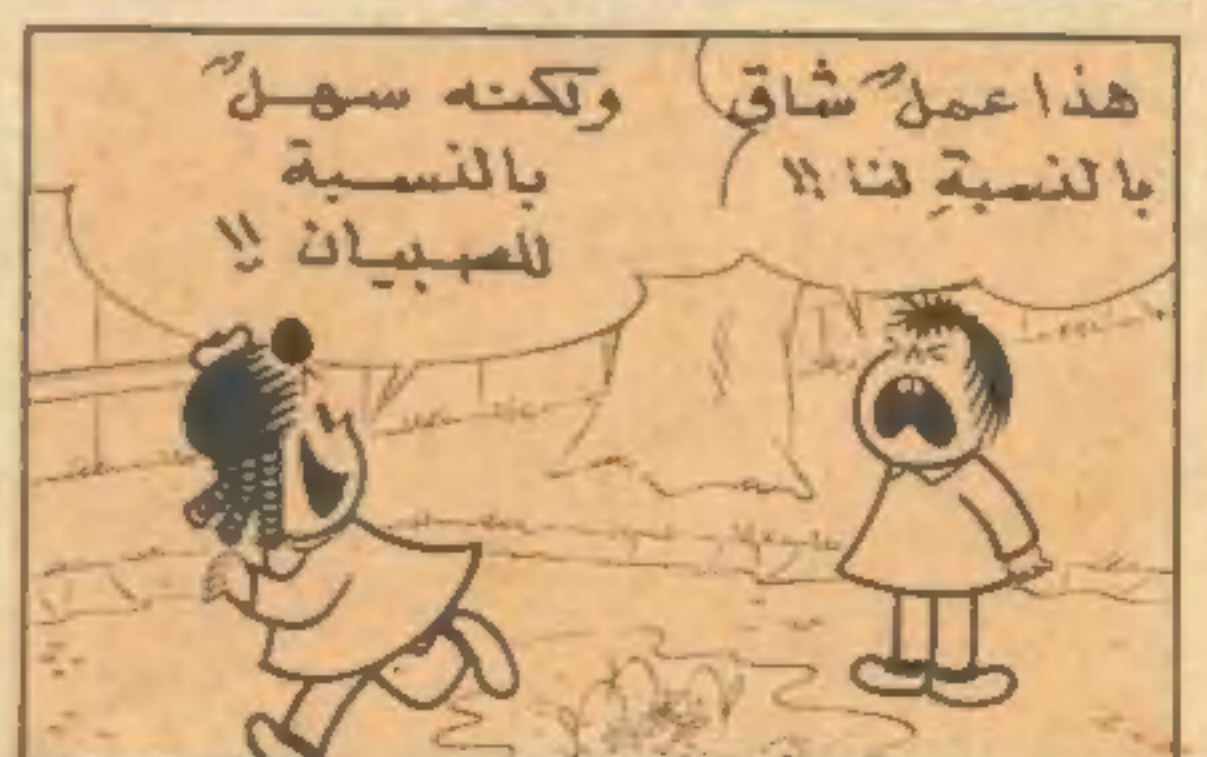 هذا عملٌ شاق
بالنسبةِ لنا !!
ولكنه سهلٌ
بالنسبة
للصبيان !!